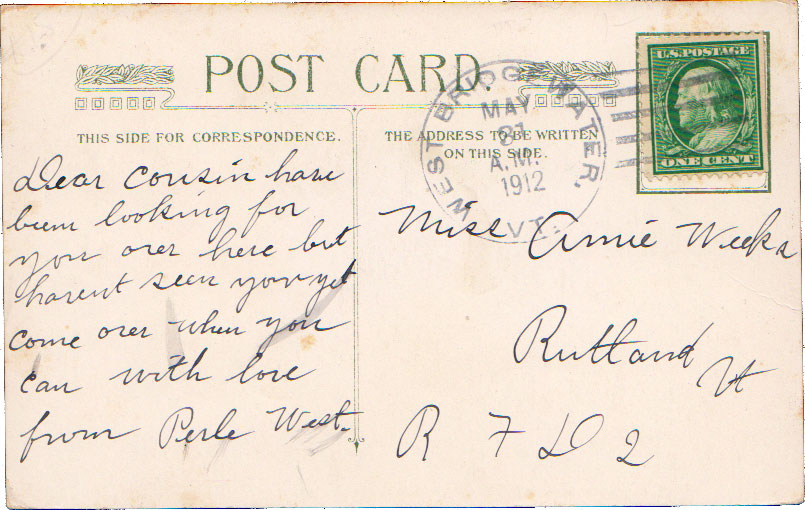 POST CARD.
THIS SIDE FOR CORRESPONDENCE.
THE ADDRESS TO BE WRITTEN
ON THIS SIDE.
WEST BRIDGEWATER, VT.
MAY
27
A.M.
1912
U.S. POSTAGE
ONE CENT
Dear Cousin have
been looking for
you over here but
havent seen you yet
come over when you
can with love
from Perle West.
Miss Annie Weeks
Rutland
Vt
R F D 2